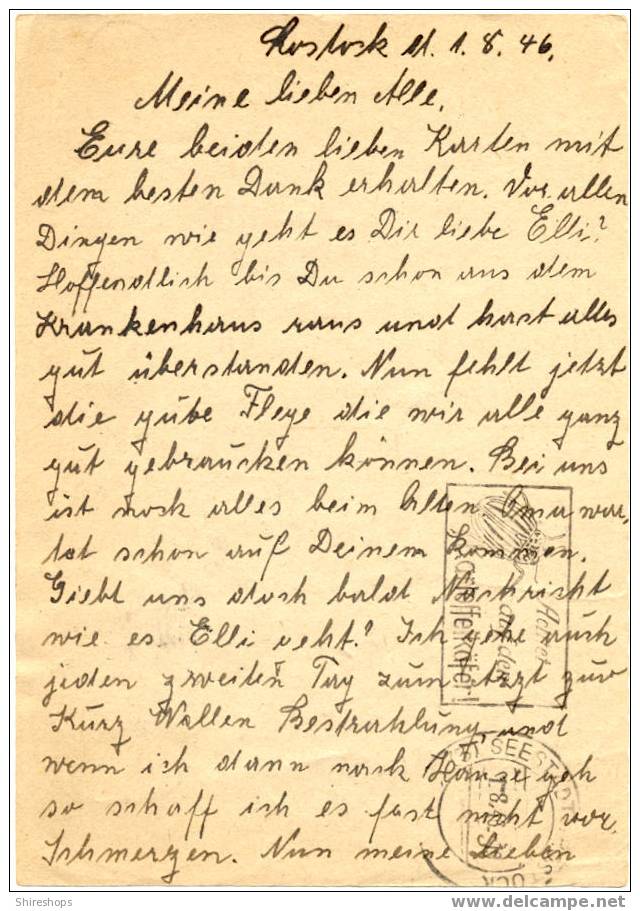 Rostock d. 1. 8. 46.
Meine lieben Alle.
Eure beiden lieben Karten mit
dem besten Dank erhalten. Vor allen
Dingen wie geht es Dir liebe Elli?
Hoffendtlich bis Du schon aus dem
Krankenhaus raus und hast alles
gut überstanden. Nun fehlt jetzt
die gute Flege die wir alle ganz
gut gebraucken können. Bei uns
ist noch alles beim Alten Oma war,
tet schon auf Deinem Kommen.
Giebt uns doch baldt Nachricht
wie es Elli geht? Ich gehe auch
jeden zweiten Tag zum Arzt zur
Kurz Wellen Bestrahlung und
wenn ich dann nach Hause geh
so schaff ich es fast nicht vor
Schmerzen. Nun meine Lieben
Achtet
auf den
Kartoffelkäfer!
SEESTADT
1.8.
Shireshops
www.delcampe.net